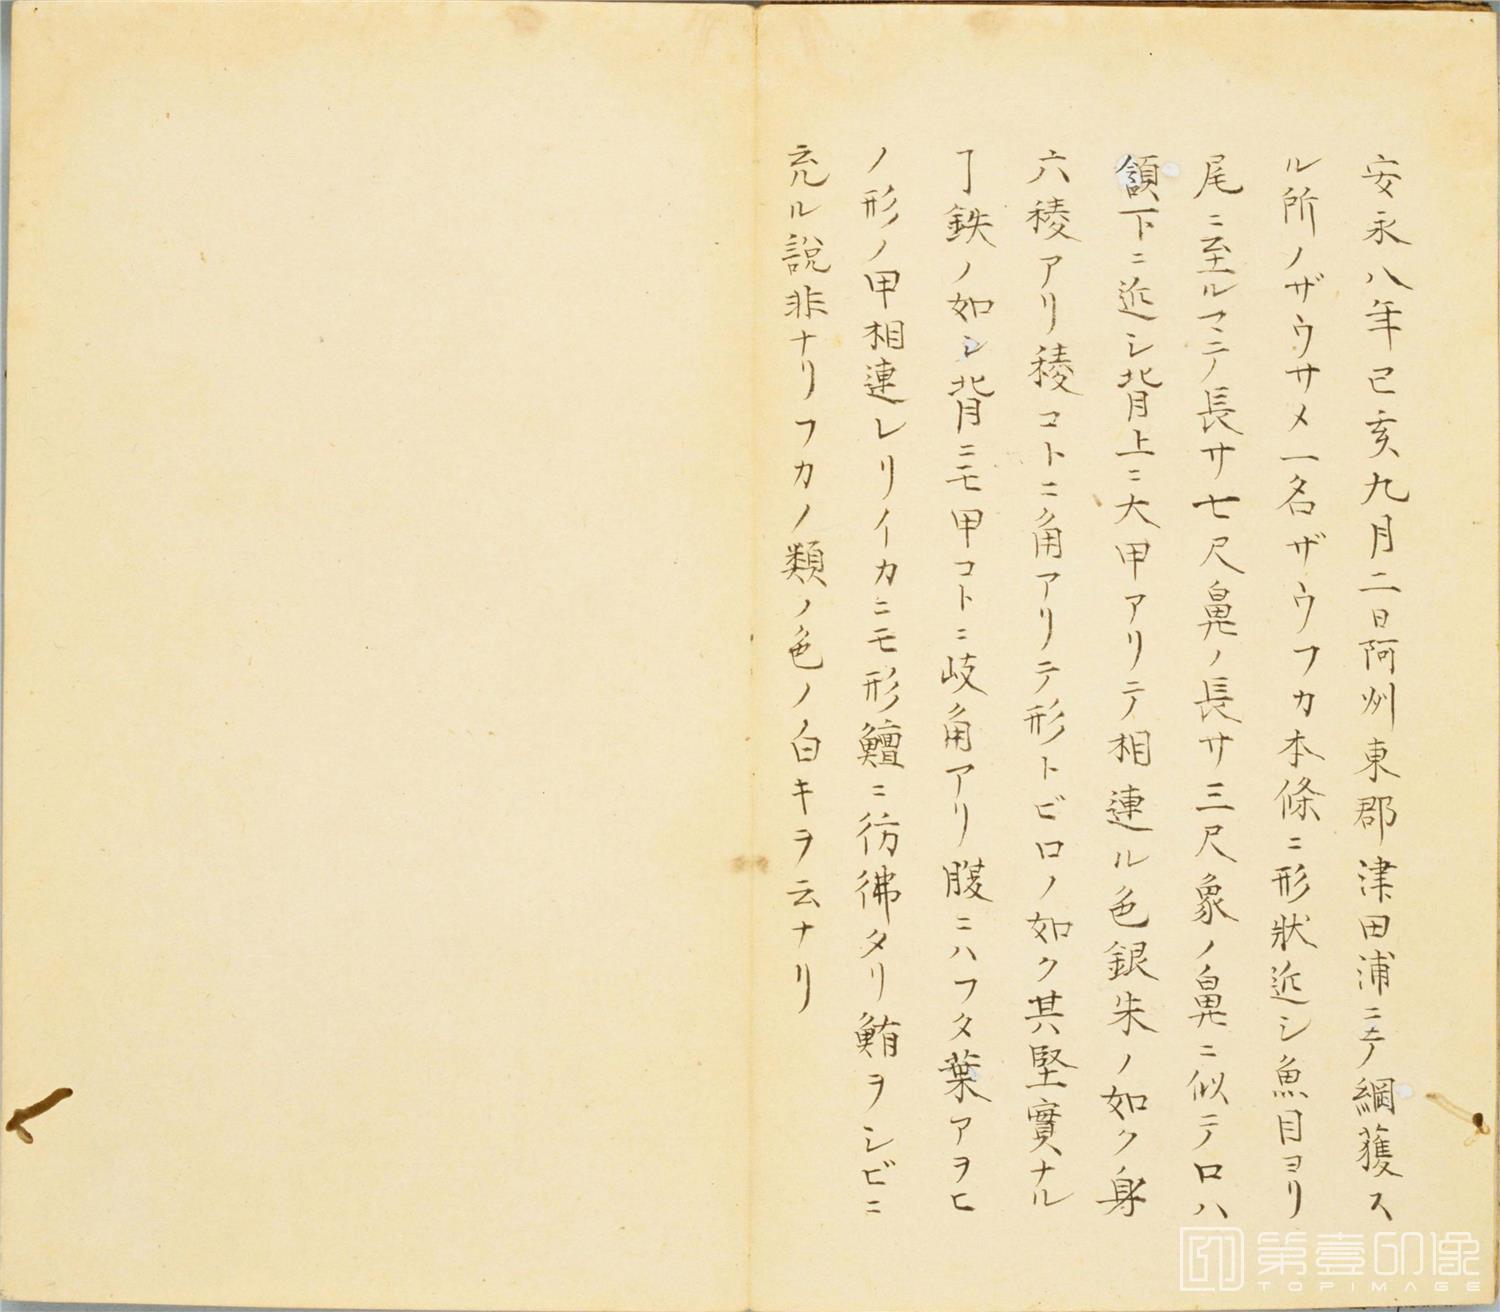 安永八年己亥九月二日阿州東郡津田浦ニテ網獲ス
ル所ノザウサメ一名ザウフカ本條ニ形狀近シ魚目ヨリ
尾ニ至ルマテ長サ七尺鼻ノ長サ三尺象ノ鼻ニ似テロハ
頷下ニ近シ背上ニ大甲アリテ相連ル色銀朱ノ如ク身
六稜アリ稜コトニ角アリテ形トビロノ如ク其堅實ナル
ヿ鉄ノ如シ背ニモ甲コトニ岐角アリ腹ニハフタ葉アヲヒ
ノ形ノ甲相連レリイカニモ形鱣ニ彷彿タリ鮪ヲシビニ
充ル說非ナリフカノ類ノ色ノ白キヲ云ナリ
第壹印像
TOPIMAGE